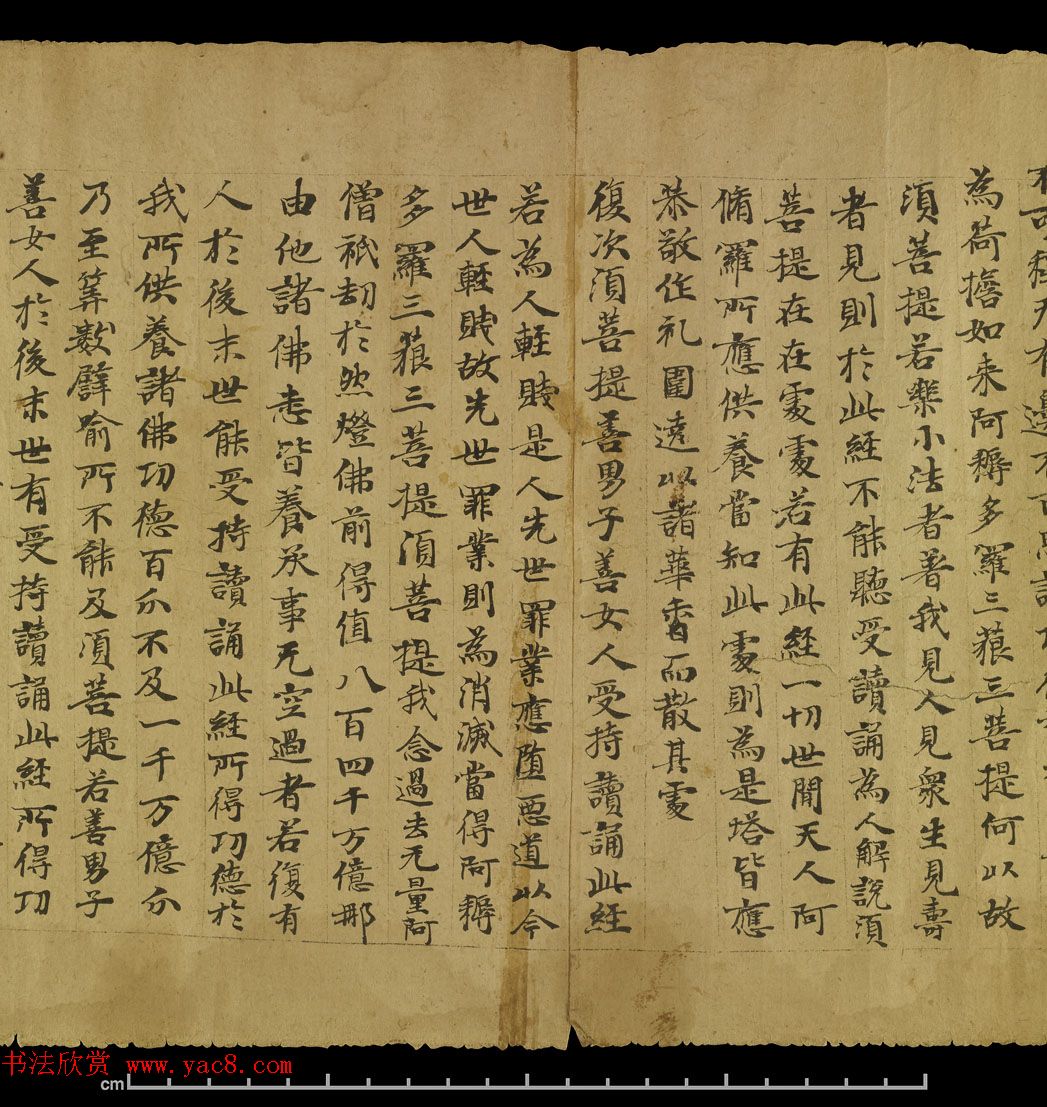 可稱无有邊不可思議
為荷擔如来阿耨多羅三藐三菩提何以故
湏菩提若樂小法者著我見人見衆生見壽
者見則於此経不能聽受讀誦為人解說湏
菩提在在處處若有此経一切世間天人阿
脩羅所應供養當知此處則為是塔皆應
恭敬作礼圍遶以諸華香而散其處
復次湏菩提善男子善女人受持讀誦此経
若為人輕賤是人先世罪業應墮惡道以今
世人輕賤故先世罪業則為消滅當得阿耨
多羅三藐三菩提湏菩提我念過去无量阿
僧祇劫於然燈佛前得值八百四千万億那
由他諸佛悉皆養承事无空過者若復有
人於後末世能受持讀誦此経所得功德於
我所供養諸佛功德百分不及一千万億分
乃至筭數譬喻所不能及湏菩提若善男子
善女人於後末世有受持讀誦此経所得功
书法欣赏 www.yac8.com
cm